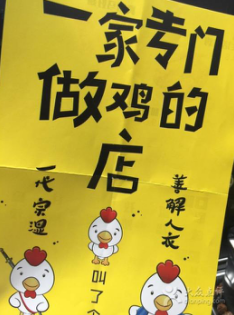 一家专门
做鸡的
店
一代宗温
善解人衣
叫了个
大众点评